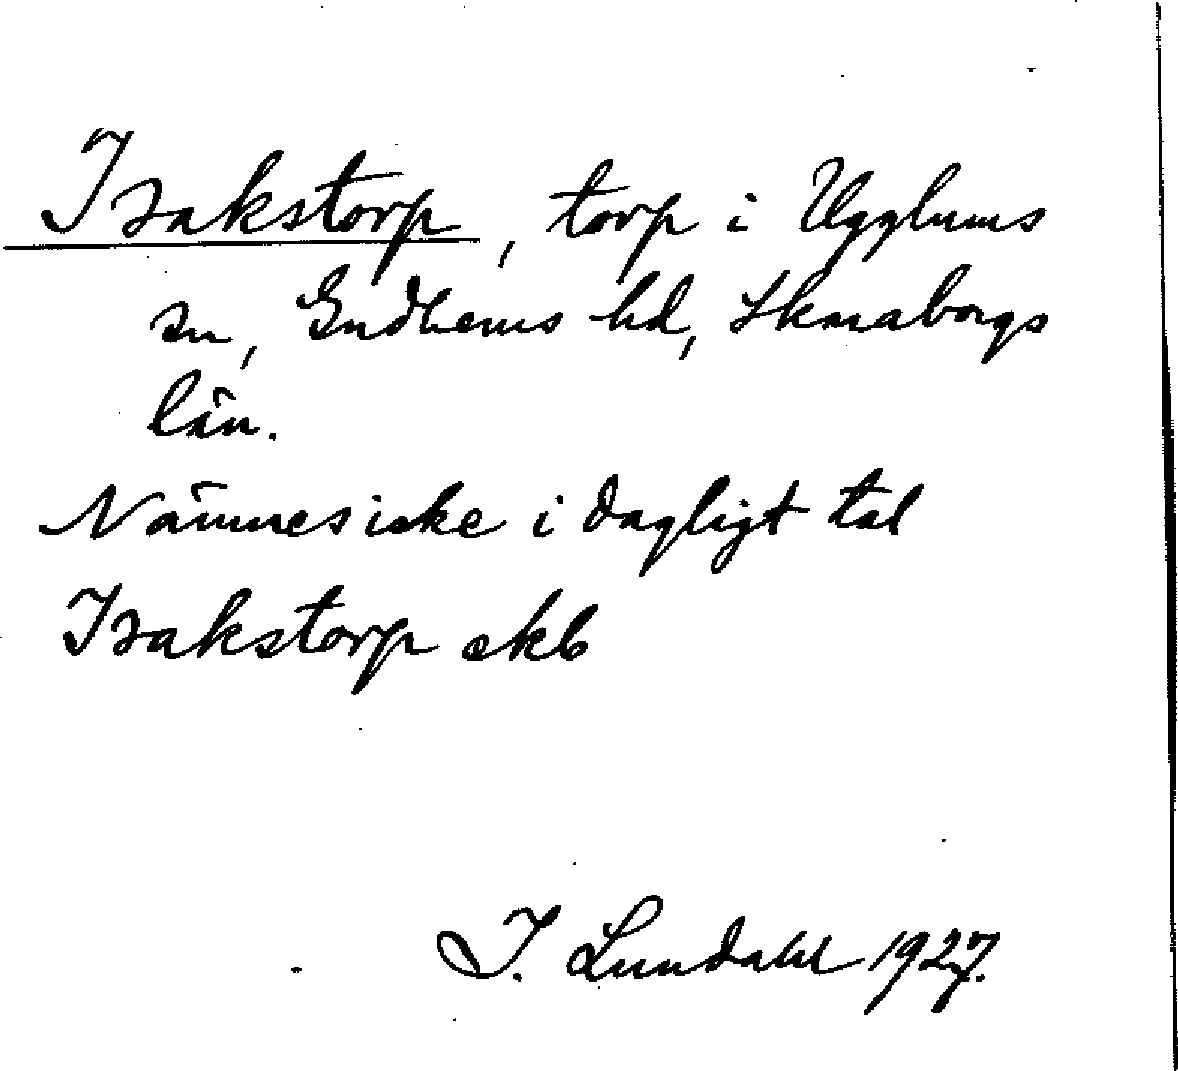 Isakstorp, torp i Ugglums
sn, Gudhems hd, Skaraborgs
län.
Nämnes icke i dagligt tal
Isakstorp ekb
I. Lundahl 1927.